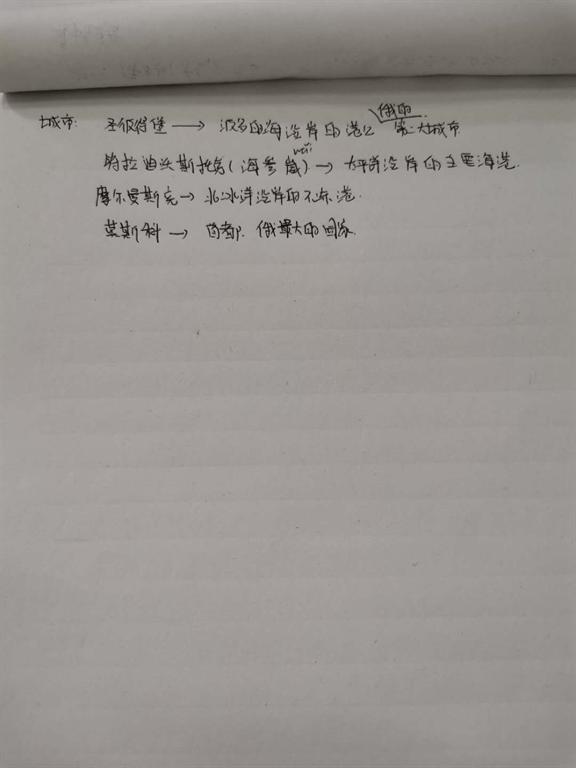 大城市: 圣彼得堡 → 波罗的海沿岸的港口 俄的第二大城市
符拉迪沃斯托克(海参崴) → 太平洋沿岸的主要海港.
摩尔曼斯克 → 北冰洋沿岸的不冻港.
莫斯科 → 首都. 俄最大的国家